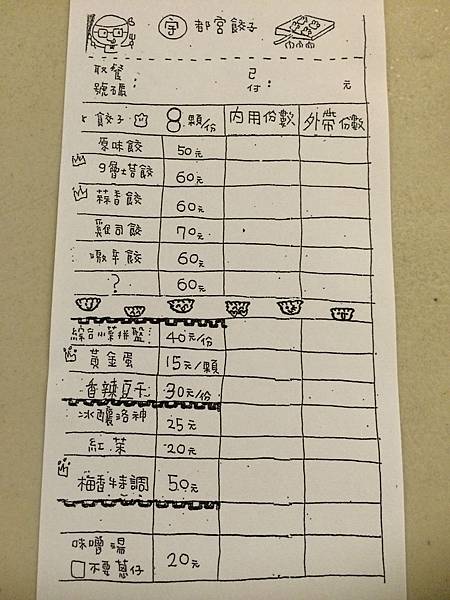 宇 都宮餃子
取餐號碼: 已付: 元
餃子 8顆/份 內用份數 外帶份數
原味餃 50元
9層塔餃 60元
蒜香餃 60元
雞司餃 70元
嗷辛餃 60元
? 60元
綜合小菜拼盤: 40元/份
黃金蛋 15元/顆
香辣豆干 30元/份
冰釀洛神 25元
紅茶 20元
梅香特調 50元
味噌湯 20元
不要蔥仔